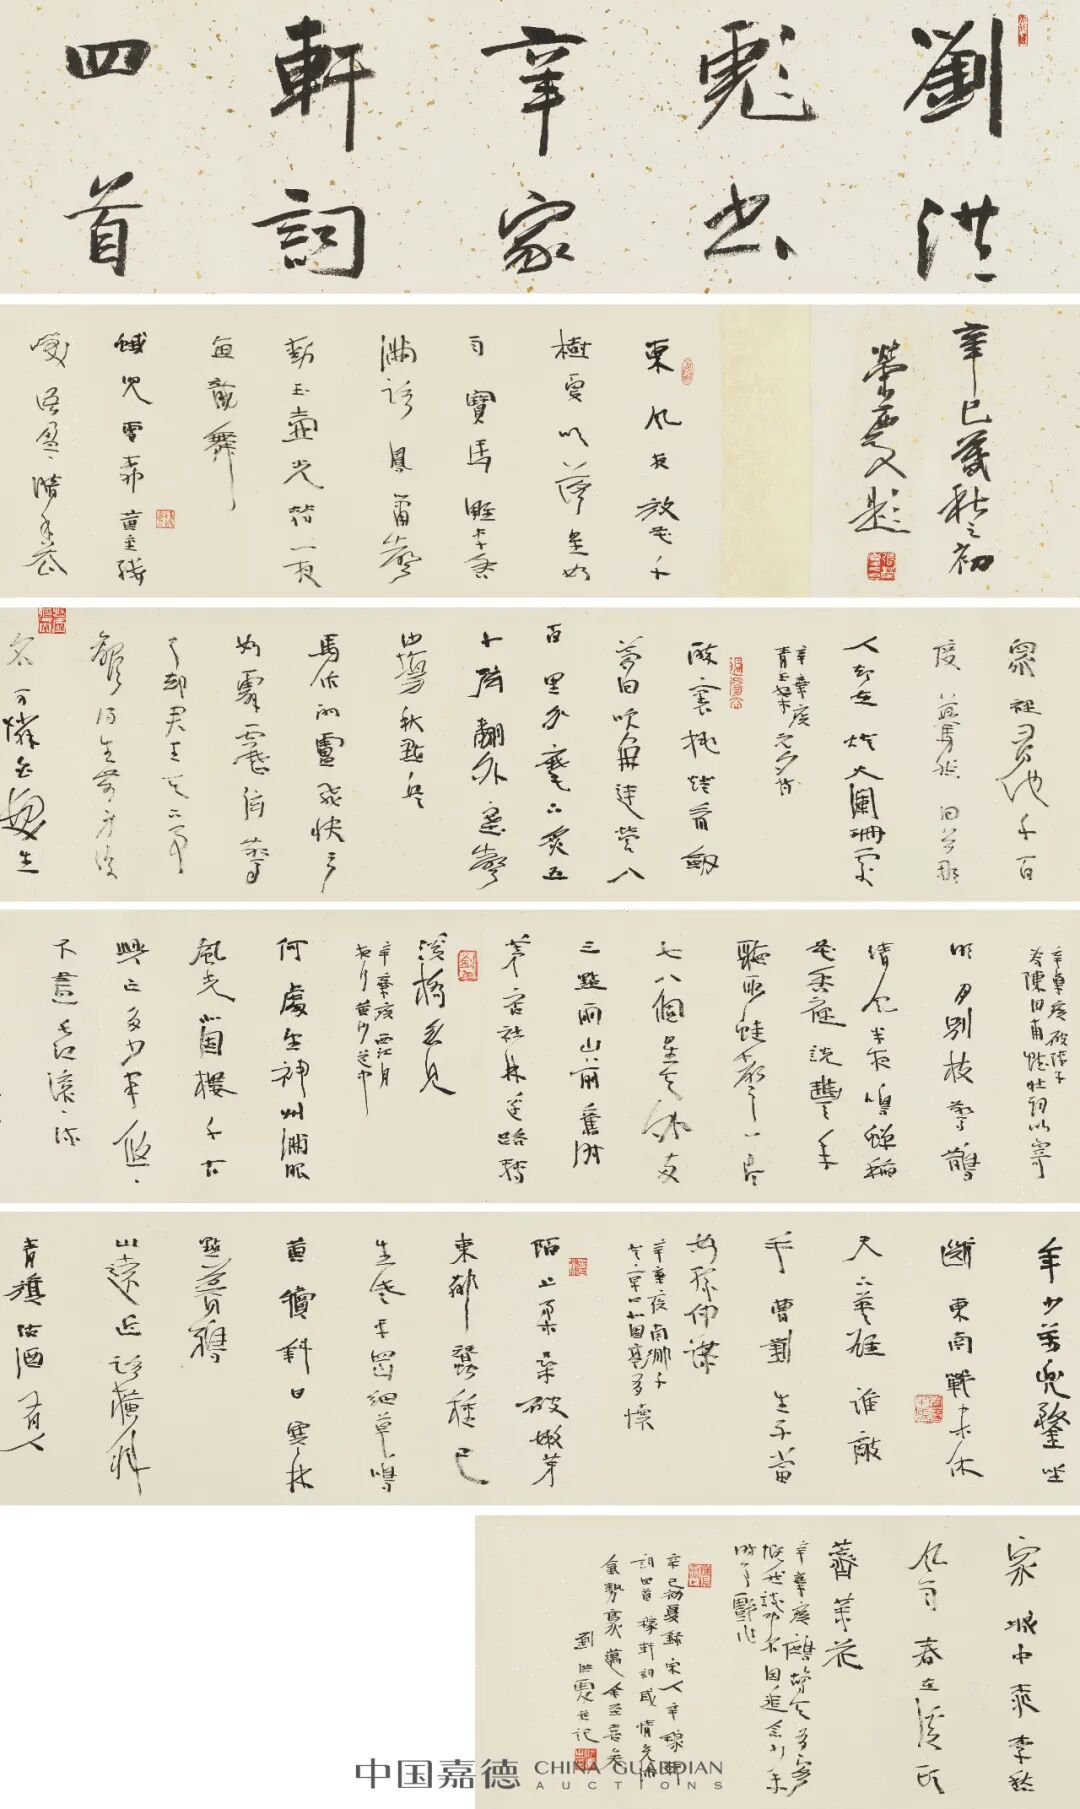 劉洪
彪書
辛家
軒詞
四首
辛巳暮秋之初
榮慶題
東風夜放花千
樹更吹落星如
雨寶馬雕車香
滿路鳳簫聲
動玉壺光轉一夜
魚龍舞
蛾兒雪柳黃金縷
笑語盈盈暗香去
眾裡尋他千百
度驀然回首那
人卻在燈火闌珊處
辛棄疾
青玉案元夕
醉裏挑燈看劍
夢回吹角連營八
百里分麾下炙五
十弦翻外塞聲
沙場秋點兵
馬作的盧飛快弓
如霹靂弦驚
了卻君王天下事
贏得生前身後
名可憐白髮生
辛棄疾破陣子
為陳同甫賦壯詞以寄
明月別枝驚鵲
清風半夜鳴蟬稻
花香裡說豐年
聽取蛙聲一片
七八個星天外兩
三點雨山前舊時
茅店社林邊路轉
溪橋忽見
辛棄疾西江月
夜行黃沙道中
何處望神州滿眼
風光北固樓千古
興亡多少事悠悠
不盡長江滾滾流
年少萬兜鍪坐
斷東南戰未休
天下英雄誰敵
手曹劉生子當
如孫仲謀
辛棄疾南鄉子
登京口北固亭有懷
陌上柔桑破嫩芽
東鄰蠶種已
生些平岡細草鳴
黃犢斜日寒林
點暮鴉
山遠近路橫斜
青旗沽酒有人
家城中桃李愁
風雨春在溪頭
薺菜花
辛棄疾鷓鴣天有客
慨然談功名因追念少年
時事戲作
辛巳初夏錄宋人辛稼軒
詞四首稼軒詞感情充沛
氣勢豪邁余至喜矣
劉洪彪並記
中国嘉德 CHINA GUARDIAN
AUCTIONS